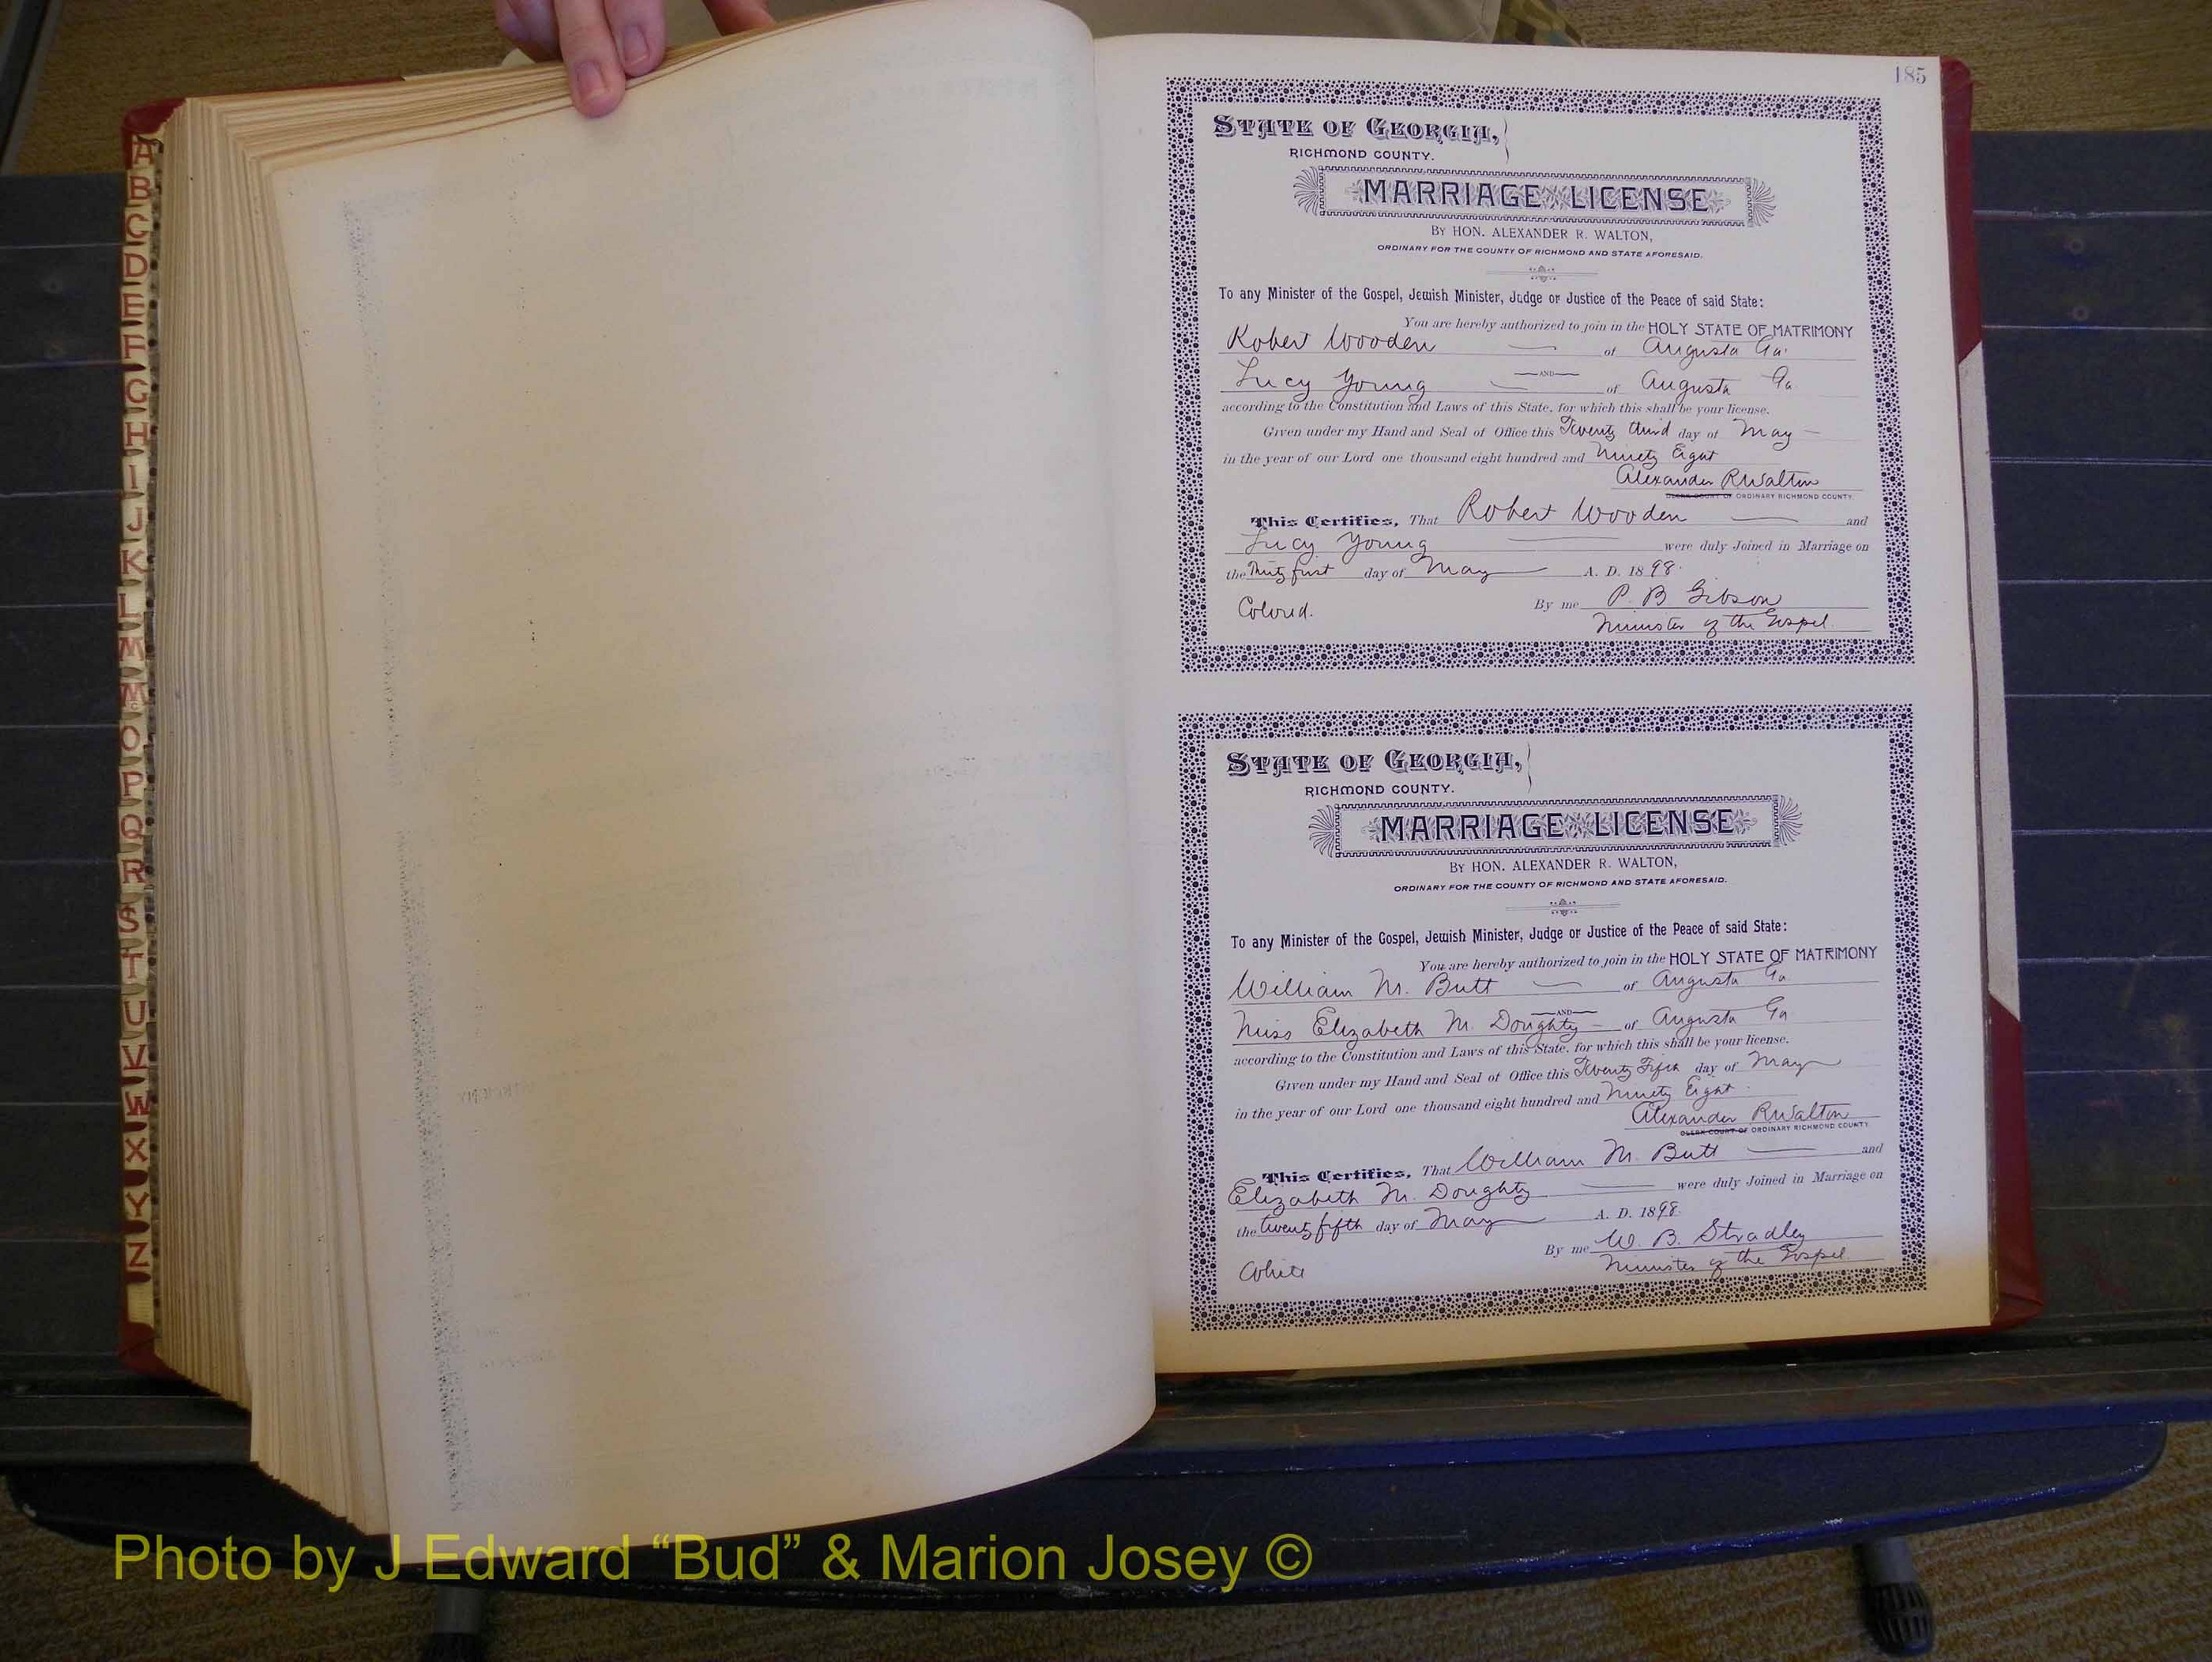 A
B
C
D
E
F
G
H
I
J
K
L
M
Mc
O
P
Q
R
S
T
U
V
W
X
Y
Z
185
STATE OF GEORGIA,
RICHMOND COUNTY.
MARRIAGE LICENSE
BY HON. ALEXANDER R. WALTON,
ORDINARY FOR THE COUNTY OF RICHMOND AND STATE AFORESAID.
To any Minister of the Gospel, Jewish Minister, Judge or Justice of the Peace of said State:
You are hereby authorized to join in the HOLY STATE OF MATRIMONY
Robert Wooden of Augusta Ga.
AND
Lucy Young of Augusta Ga.
according to the Constitution and Laws of this State, for which this shall be your license.
Given under my Hand and Seal of Office this Twenty third day of May
in the year of our Lord one thousand eight hundred and Ninety Eight
Alexander R Walton
CLERK COURT OF ORDINARY RICHMOND COUNTY.
This Certifies, That Robert Wooden and
Lucy Young were duly Joined in Marriage on
the Thirty first day of May A. D. 1898.
Colored. By me P B Gibson
Minister of the Gospel.
STATE OF GEORGIA,
RICHMOND COUNTY.
MARRIAGE LICENSE
BY HON. ALEXANDER R. WALTON,
ORDINARY FOR THE COUNTY OF RICHMOND AND STATE AFORESAID.
To any Minister of the Gospel, Jewish Minister, Judge or Justice of the Peace of said State:
You are hereby authorized to join in the HOLY STATE OF MATRIMONY
William M. Butt of Augusta Ga
AND
Miss Elizabeth M. Doughty of Augusta Ga
according to the Constitution and Laws of this State, for which this shall be your license.
Given under my Hand and Seal of Office this Twenty Fifth day of May
in the year of our Lord one thousand eight hundred and Ninety Eight
Alexander R Walton
CLERK COURT OF ORDINARY RICHMOND COUNTY
This Certifies, That William M. Butt and
Elizabeth M. Doughty were duly Joined in Marriage on
the twenty fifth day of May A. D. 1898.
By me W. B. Stradley
White Minister of the Gospel.
Photo by J Edward “Bud” & Marion Josey ©